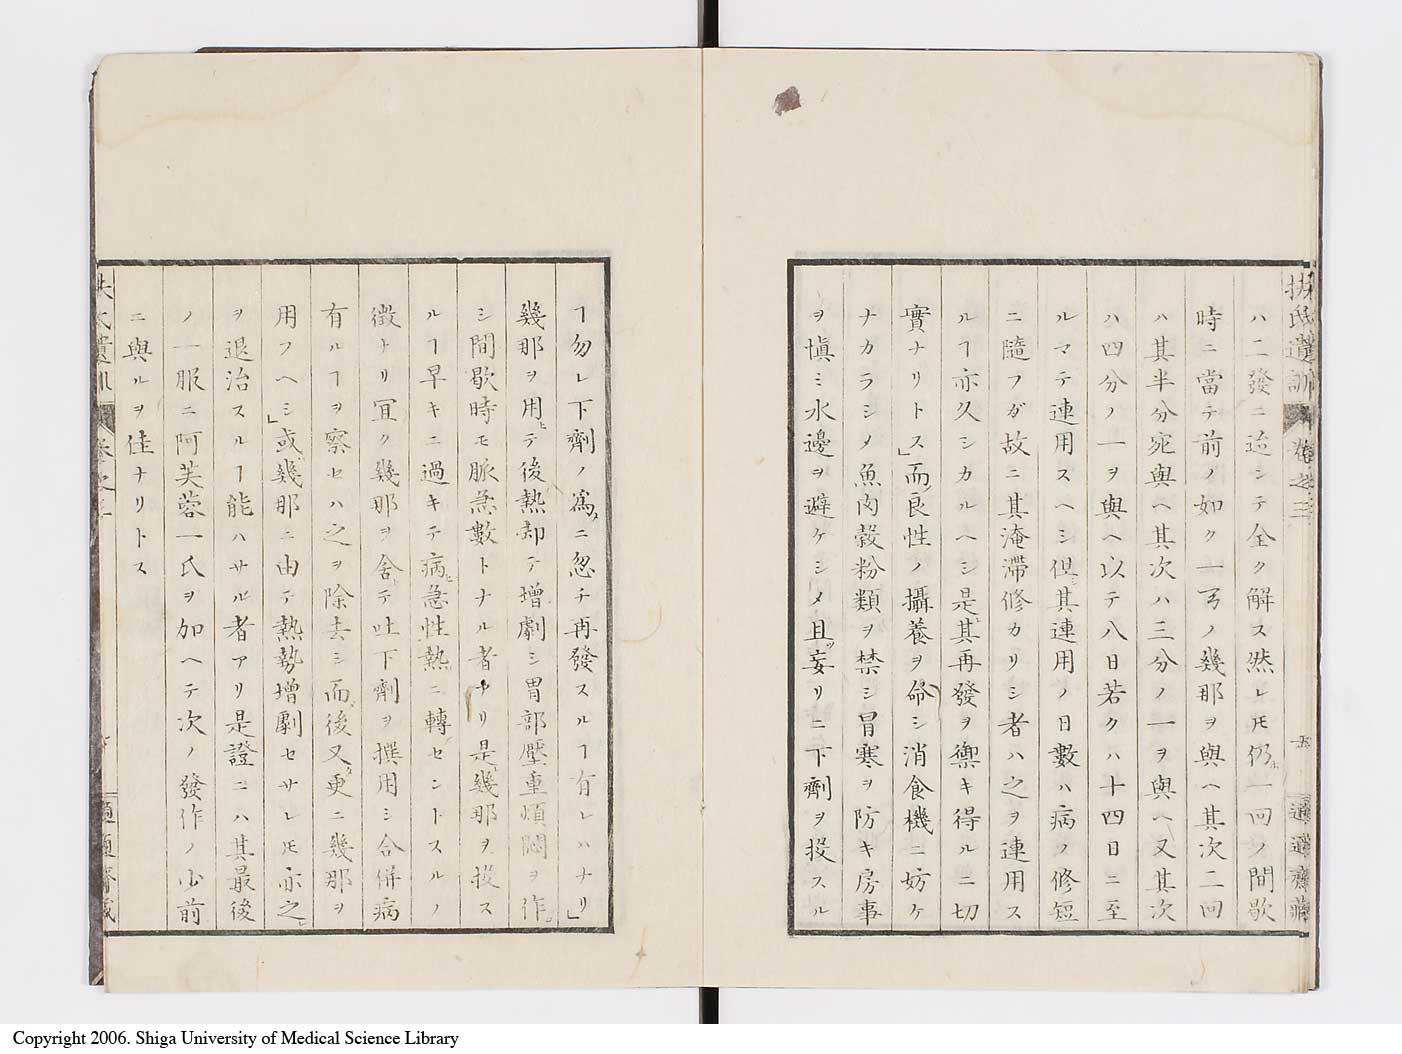 扶氏遺訓 卷之三 五 適適齋藏
ハ二發ニ迨シテ全ク解ス然レ𪜈仍一回ノ間歇
時ニ當テ前ノ如ク一弓ノ幾那ヲ與ヘ其次二回
ハ其半分宛與ヘ其次ハ三分ノ一ヲ與ヘ又其次
ハ四分ノ一ヲ與ヘ以テ八日若クハ十四日ニ至
ルマテ連用スヘシ但シ其連用ノ日數ハ病ノ修短
ニ隨フガ故ニ其淹滯修カリシ者ハ之ヲ連用ス
ルヿ亦久シカルヘシ是其再發ヲ禦キ得ルニ切
實ナリトス」而良性ノ攝養ヲ命シ消食機ニ妨ケ
ナカラシメ魚肉穀粉類ヲ禁シ冒寒ヲ防キ房事
ヲ愼ミ水邊ヲ避ケシメ且ツ妄リニ下劑ヲ投スル
ヿ勿レ下劑ノ爲ニ忽チ再發スルヿ有レハナリ」
幾那ヲ用ヒテ後熱却テ增劇シ胃部壓重煩悶ヲ作
シ間歇時モ脈急數トナル者アリ是幾那ヲ投ス
ルヿ早キニ過キテ病急性熱ニ轉セントスルノ
徵ナリ冝ク幾那ヲ舍テ吐下劑ヲ撰用シ合併病
有ルヿヲ察セハ之ヲ除去シ而後又更ニ幾那ヲ
用フヘシ」或幾那ニ由テ熱勢增劇セサレ𪜈亦之
ヲ退治スルヿ能ハサル者アリ是證ニハ其最後
ノ一服ニ阿芙蓉一氏ヲ加ヘテ次ノ發作ノ少前
ニ與ルヲ佳ナリトス
Copyright 2006. Shiga University of Medical Science Library